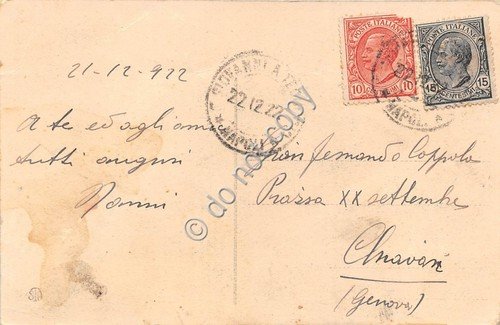 21-12-922
A te ed agli amici
tutti auguri
Nanni
Fernando Coppola
Piazza XX settembre
Chiavari
(Genova)
POSTE ITALIANE
10 CENTESIMI 10
POSTE ITALIANE
15 CENTESIMI 15
22.12.22
NAPOLI
NAPOLI
© do not copy